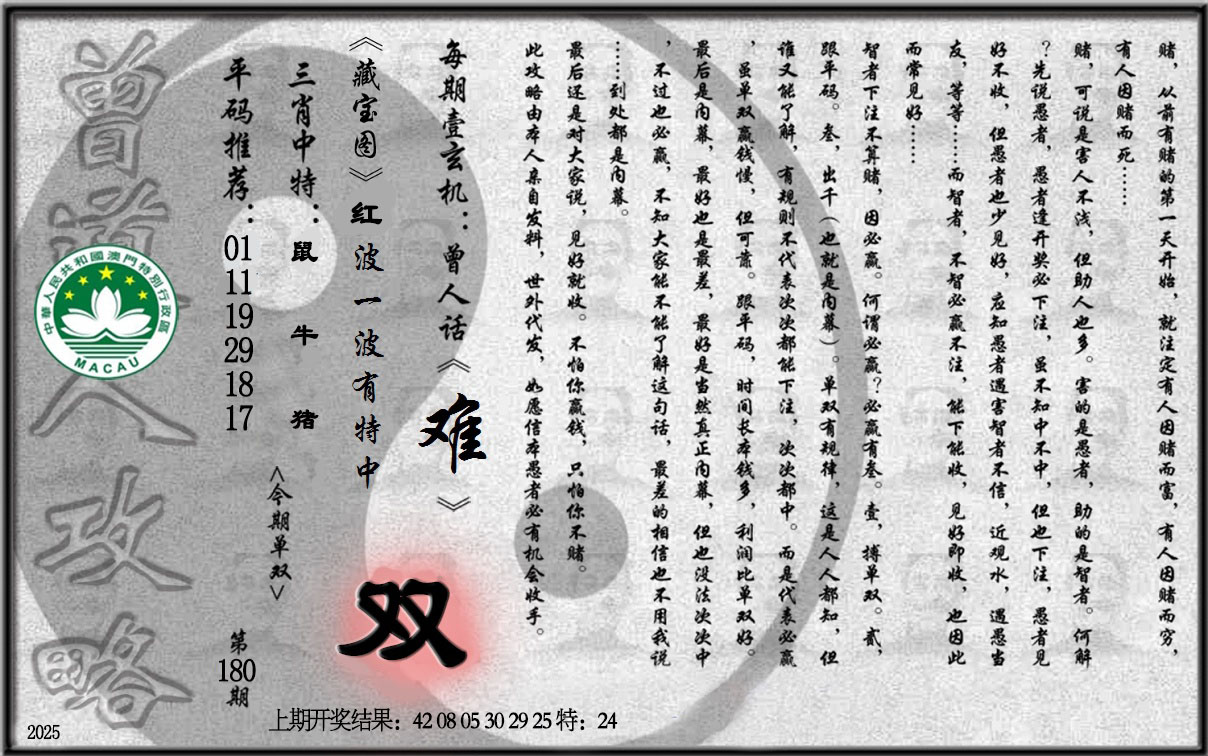 赌，从前有赌的第一天开始，就注定有人因赌而富，有人因赌而穷，
有人因赌而死……
赌，可说是害人不浅，但助人也多。害的是愚者，助的是智者。何解
？先说愚者，愚者逢开奖必下注，虽不知中不中，但也下注，愚者见
好不收，但愚者也少见好，应知愚者遇害智者不信，近观水，遇愚当
友，等等……而智者，不智必赢不注，能下能收，见好即收，也因此
而常见好……
智者下注不算赌，因必赢。何谓必赢？必赢有叁。壹，搏单双。贰，
跟平码。叁，出千（也就是内幕）。单双有规律，这是人人都知，但
谁又能了解，有规则不代表次次都能下注，次次都中。而是代表必赢
，虽单双赢钱慢，但可靠。跟平码，时间长本钱多，利润比单双好。
最后是内幕，最好也是最差，最好是当然真正内幕，但也没法次次中
，不过也必赢，不知大家能不能了解这句话，最差的相信也不用我说
……到处都是内幕。
最后还是对大家说，见好就收。不怕你赢钱，只怕你不赌。
此攻略由本人亲自发料，世外代发，如愿信本愚者必有机会收手。
每期壹玄机：曾人话《难》
《藏宝图》红波一波有特中
双
三肖中特：鼠牛猪
<今期单双>
平码推荐：01 11 19 29 18 17
第180期
曾道人攻略
中華人民共和國澳門特別行政區
MACAU
上期开奖结果：42 08 05 30 29 25 特：24
2025